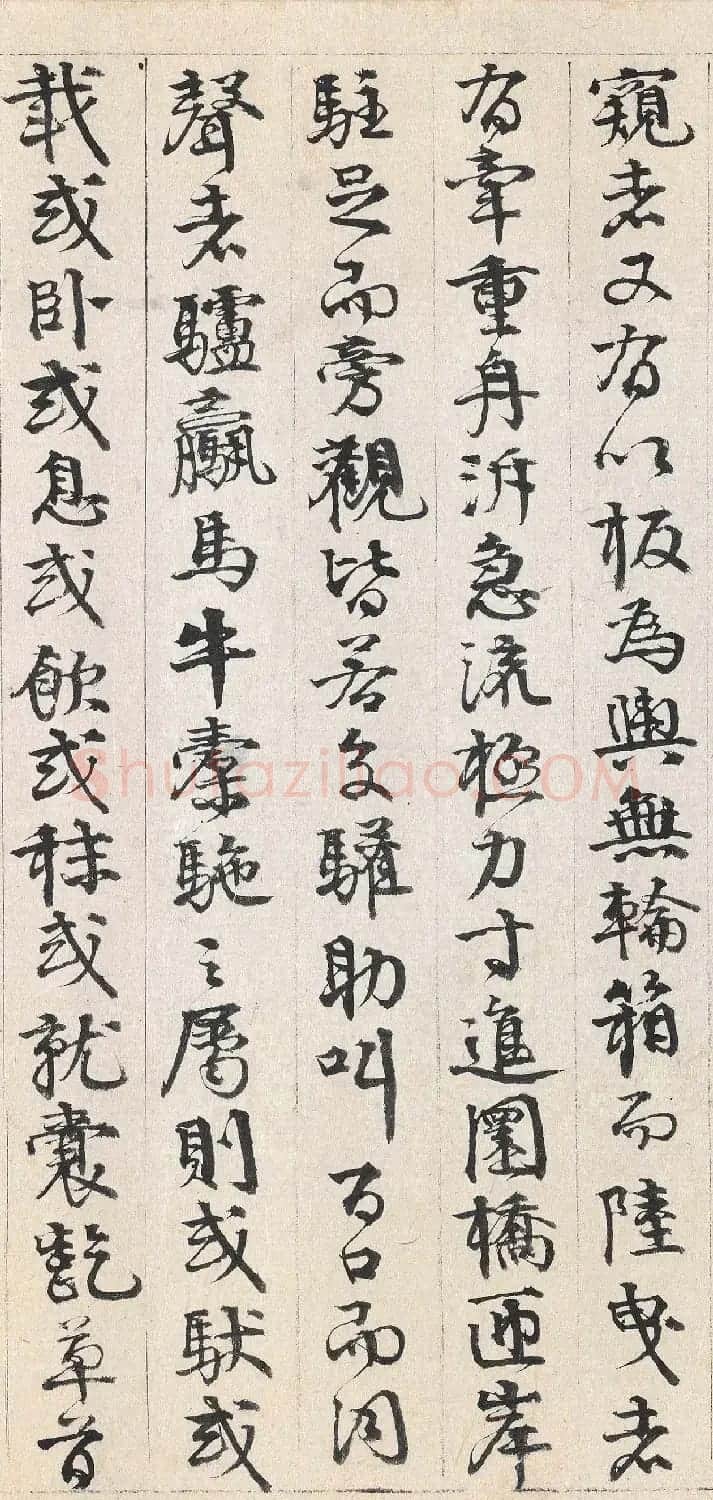 窺者又有以板為輿無輪箱而陸曳者
有牽重舟泝急流極力寸進圜橋匝岸
駐足而旁觀皆若交驩助叫百口而同
聲者驢驘馬牛橐駞之屬則或馱或
載或臥或息或飲或秣或就囊齕草首
Shufaziliao.COM